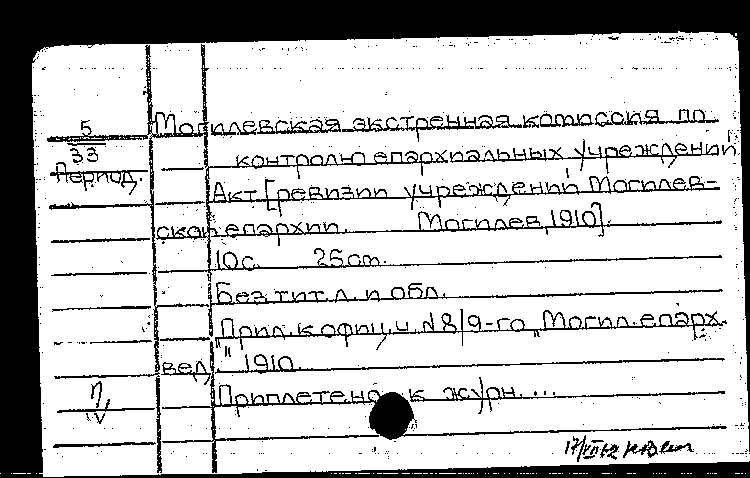 5
33
Период.
Могилевская экстренная комиссия по
контролю епархиальных учреждений
Акт [ревизии учреждений Могилев-
ской епархии. Могилев, 1910].
10с. 25см.
Без тит. л. и обл.
"Прил. к офиц. ч. №8/9-го "Могил. епарх.
вед." 1910.
Приплетено к журн. ...
П
IV